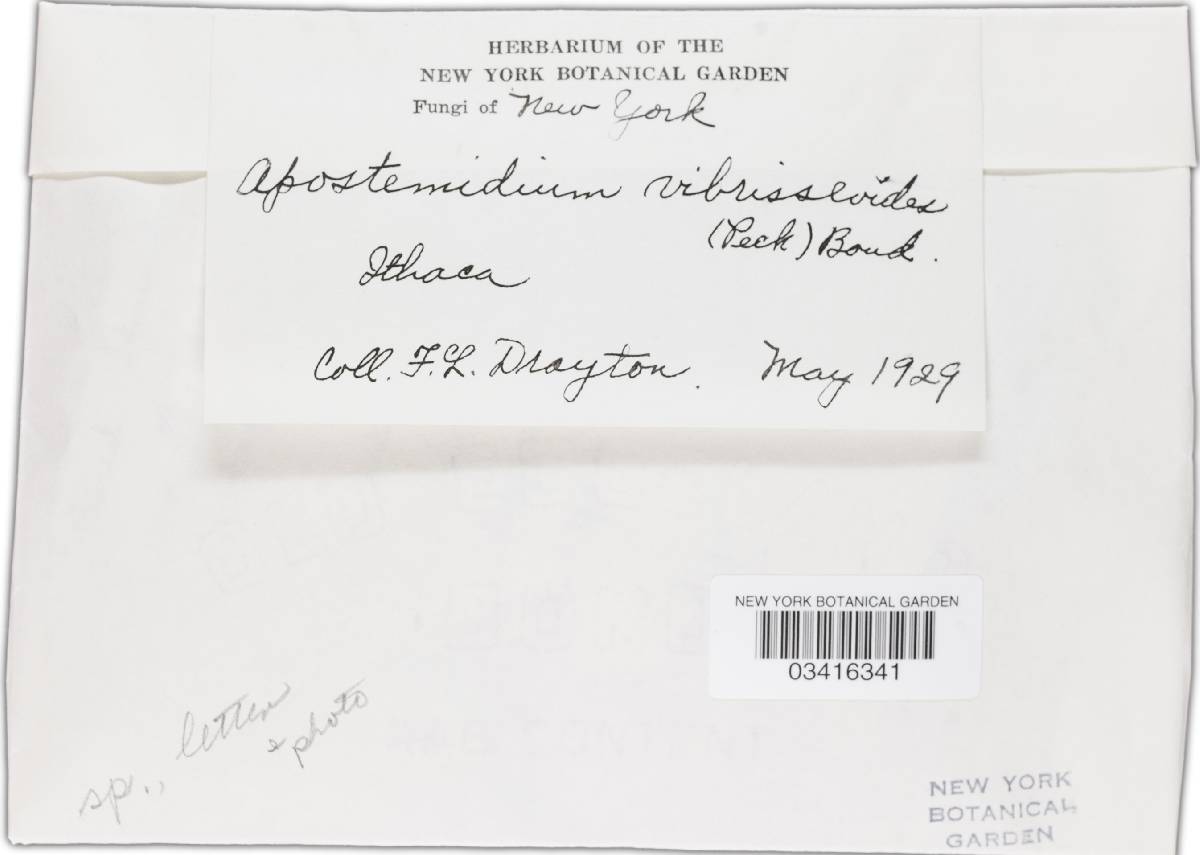 HERBARIUM OF THE
NEW YORK BOTANICAL GARDEN
Fungi of New York
Apostemidium vibrisseoides
(Peck) Boud.
Ithaca
Coll. F.L. Drayton. May 1929
NEW YORK BOTANICAL GARDEN
03416341
sp., letter
& photo
NEW YORK
BOTANICAL
GARDEN